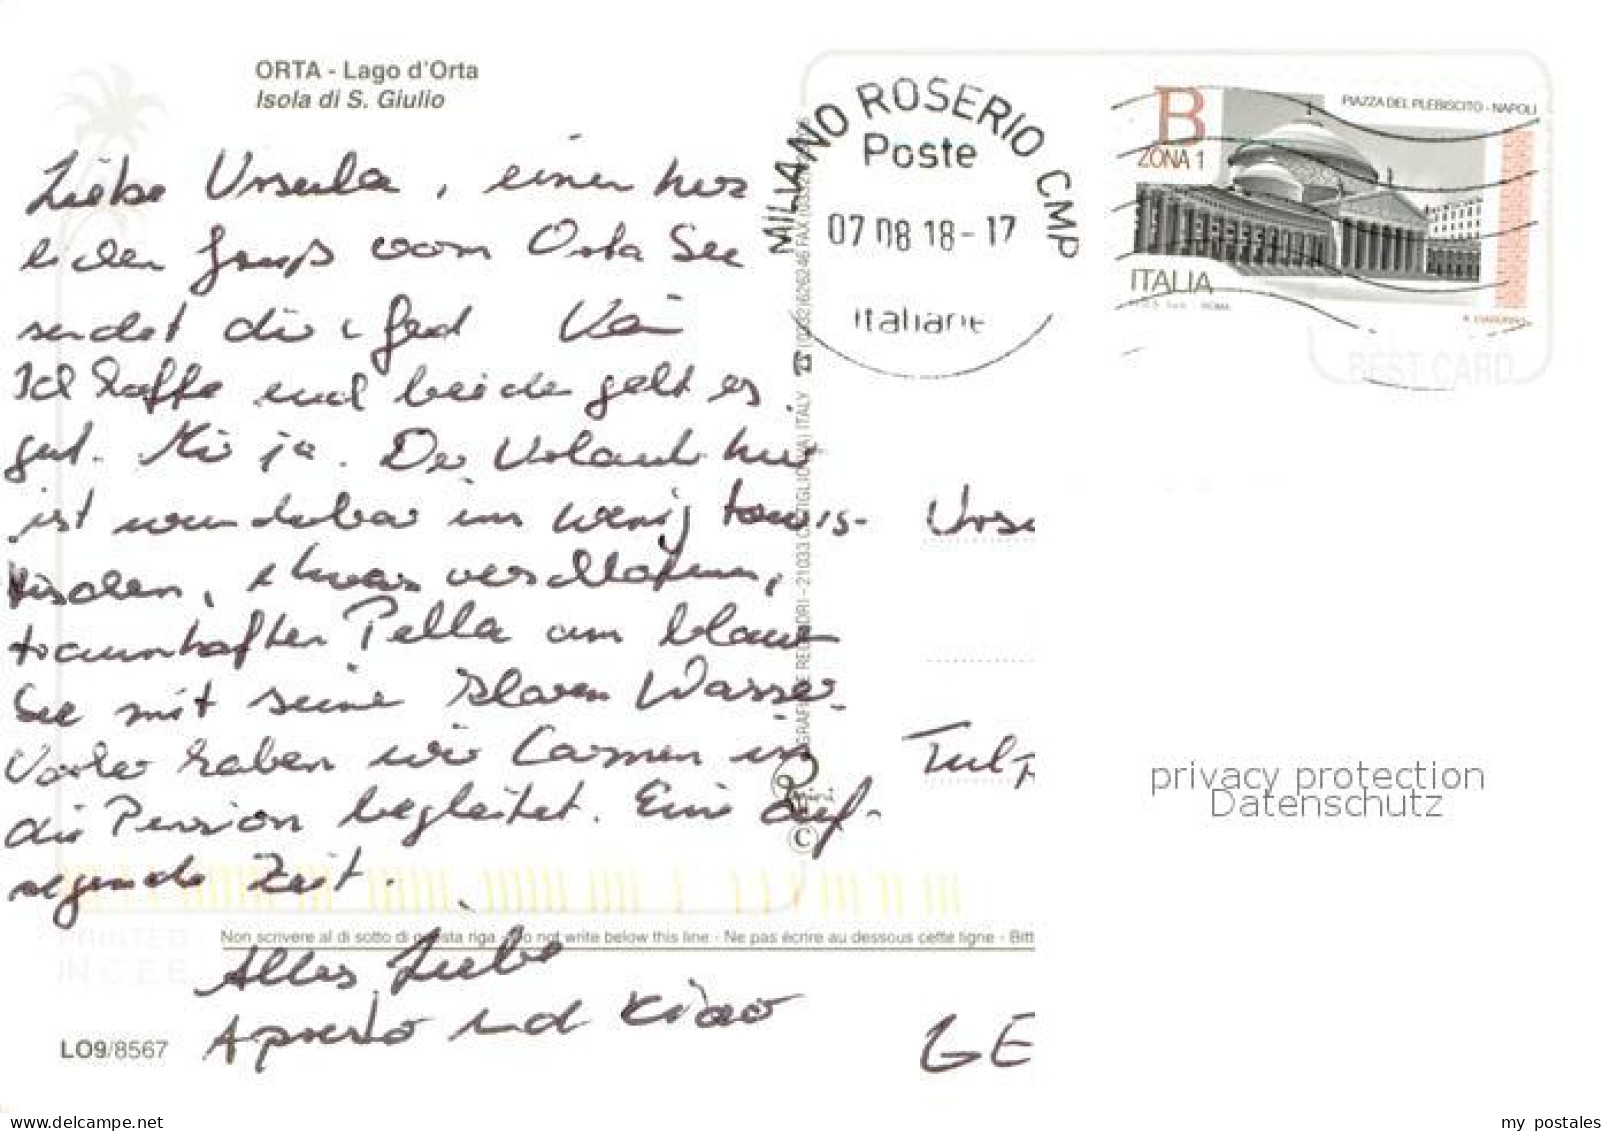 ORTA - Lago d'Orta
Isola di S. Giulio
Liebe Ursula, einen herz
lichen Gruß vom Orta See
sendet dir
Ich hoffe euch beiden geht es
gut. Mir ja. Der Urlaub hier
ist wunderbar im wenig touris-
tischen, etwas verschlafenen,
traumhaften Pella am blauen
See mit seinem klaren Wasser.
Vorher haben wir Carmen in
die Pension begleitet. Eine auf-
regende Zeit.
Alles Liebe
A presto und Kiao
MILIANO ROSERIO CMP
Poste
07 08 18 - 17
Italiane
B
ZONA 1
PIAZZA DEL PLEBISCITO - NAPOLI
ITALIA
ROMA
BEST CARD
Ursu
Tulp
GE
privacy protection
Datenschutz
Non scrivere al di sotto di questa riga - Do not write below this line - Ne pas écrire au dessous cette ligne - Bitt
PRINTED
IN C.E.E.
LO9/8567
www.delcampe.net
my postales